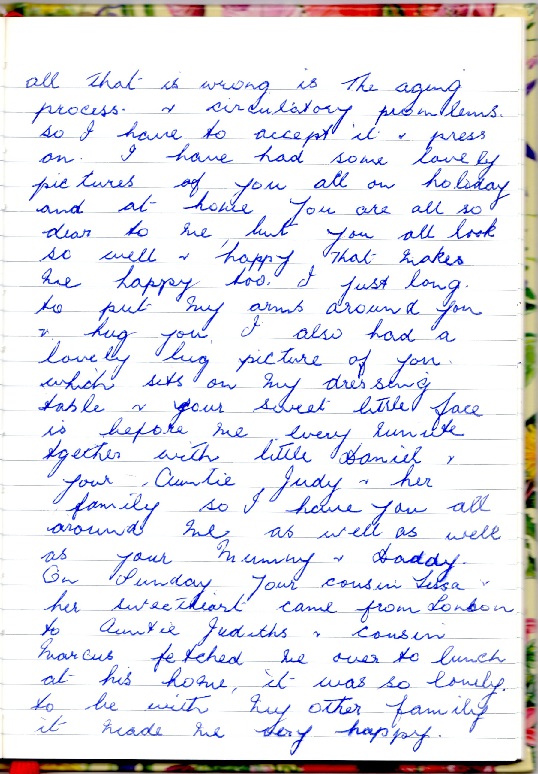 all that is wrong is the aging
process. & circulatory promlems.
so I have to accept it & press
on. I have had some lovely
pictures of you all on holiday
and at home you are all so
dear to me, but you all look
so well & happy that makes
me happy too. I just long
to put my arms around you
& hug you. I also had a
lovely big picture of you.
which sits on my dressing
table & your sweet little face
is before me every minute
together with little Daniel &
your Auntie Judy & her
family so I have you all
around me, as well as well
as your Mummy & Daddy.
On Sunday your cousin Lissa &
her sweetheart came from London
to Auntie Judiths & cousin
Marcus fetched me over to lunch
at his home, it was so lovely.
to be with my other family
it made me very happy.